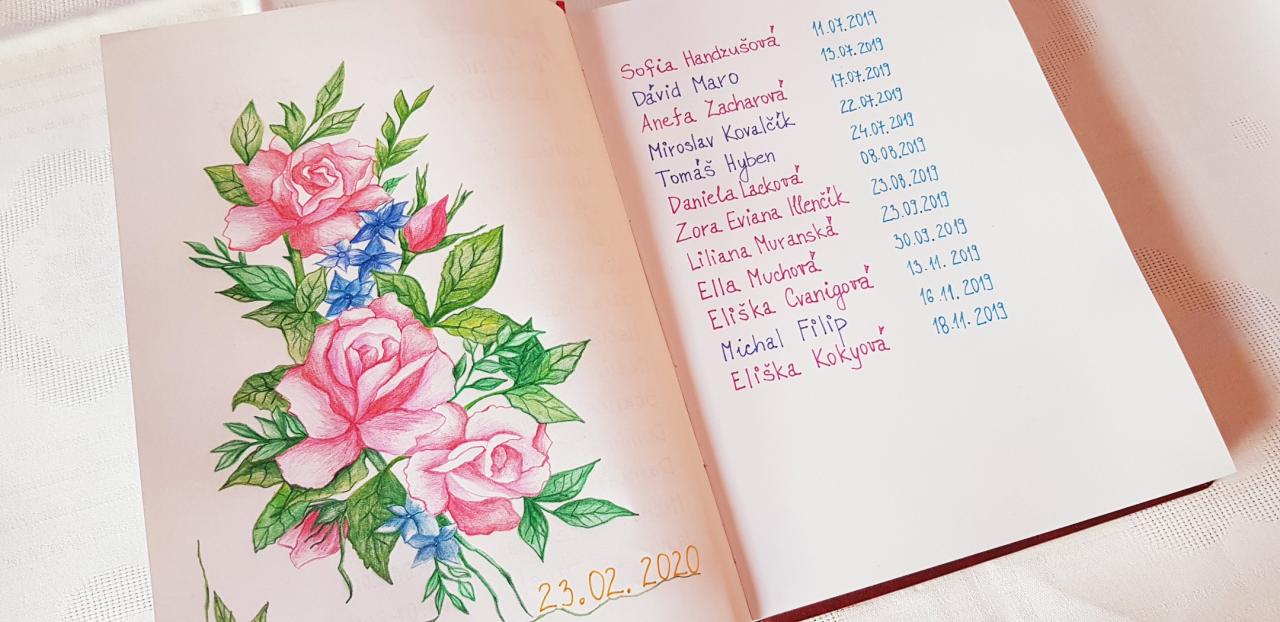 23.02.2020
Sofia Handzušová 11.07.2019
Dávid Maro 13.07.2019
Anefa Zacharová 17.07.2019
Miroslav Kovalčík 22.07.2019
Tomáš Hyben 24.07.2019
Daniela Lacková 08.08.2019
Zora Eviana Illenčík 23.08.2019
Liliana Muranská 23.09.2019
Ella Muchová 30.09.2019
Eliška Cvanigová 13.11.2019
Michal Filip 16.11.2019
Eliška Kokyová 18.11.2019